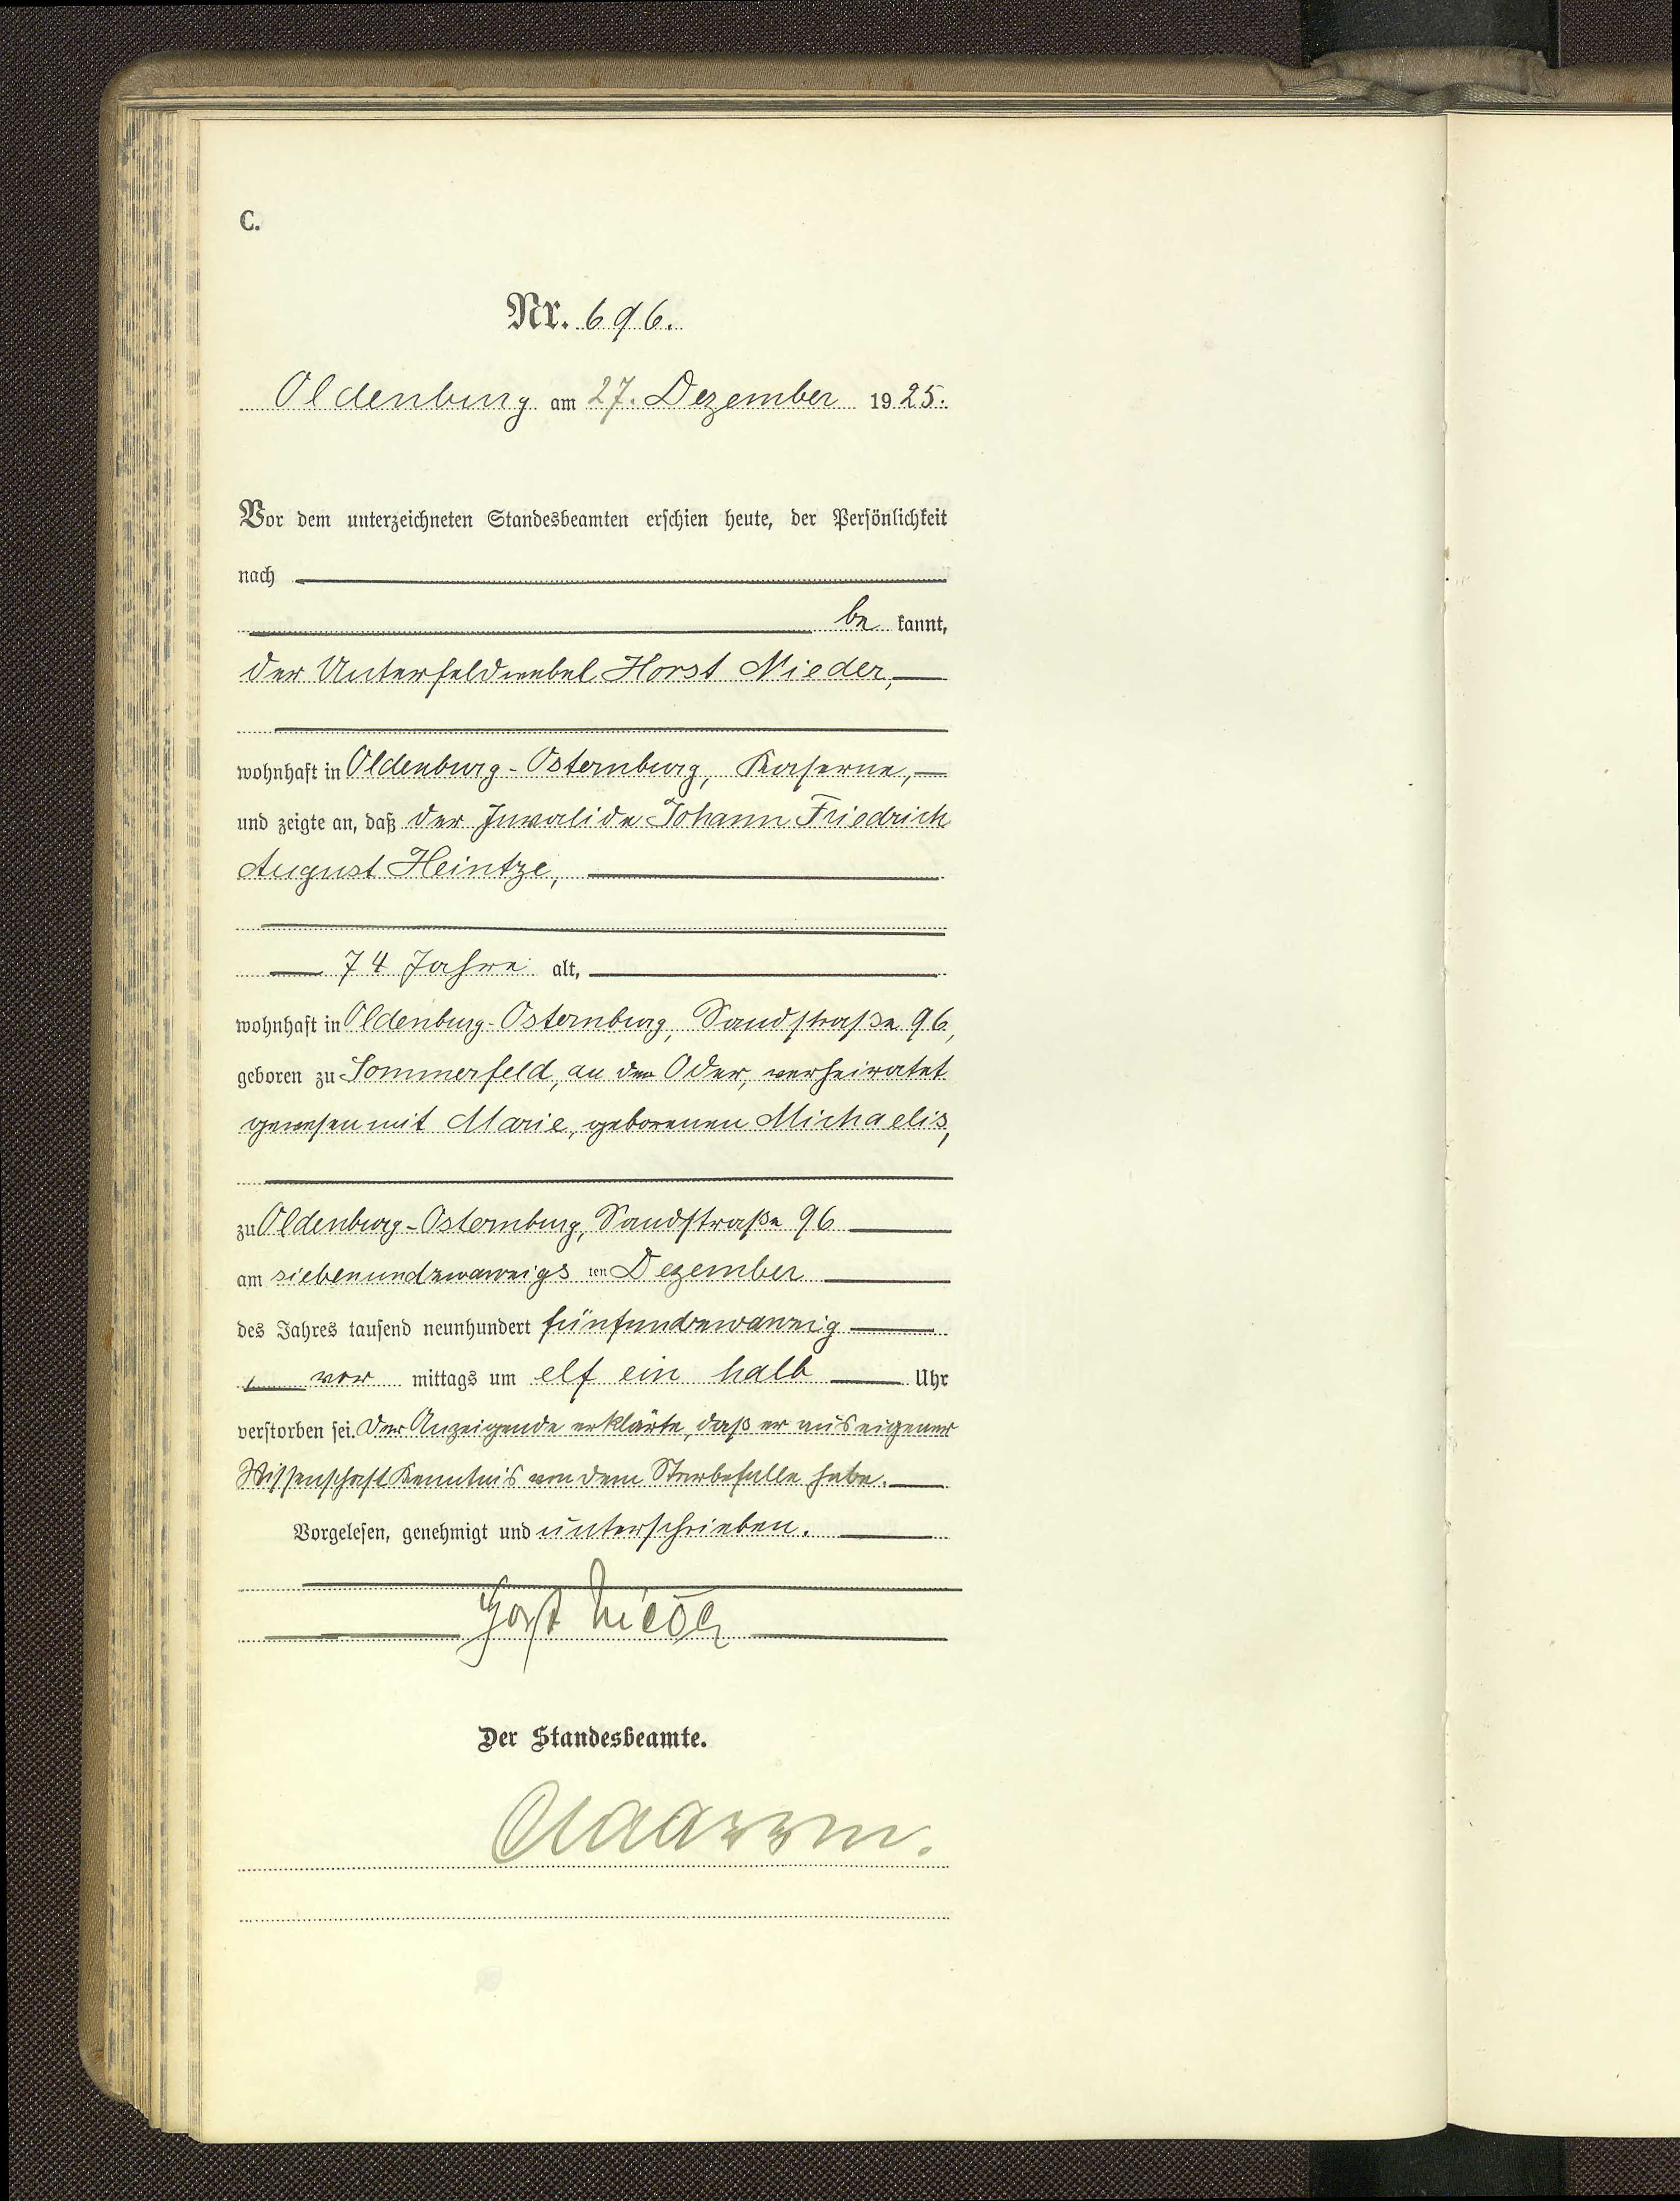 C.
Nr. 696.
Oldenburg am 27. Dezember 1925.
Vor dem unterzeichneten Standesbeamten erschien heute, der Persönlichkeit
nach
be kannt,
der Unterfeldwebel Horst Nieder,
wohnhaft in Oldenburg-Osternburg, Kaserne,
und zeigte an, daß der Invalide Johann Friedrich
August Heintze,
74 Jahre alt,
wohnhaft in Oldenburg-Osternburg, Sandstraße 96,
geboren zu Sommerfeld, an der Oder, verheiratet
gewesen mit Marie, geborenen Michaelis,
zu Oldenburg-Osternburg, Sandstraße 96
am siebenundzwanzigs ten Dezember
des Jahres tausend neunhundert fünfundzwanzig
vor mittags um elf ein halb Uhr
verstorben sei. Der Anzeigende erklärte, daß er aus eigener
Wissenschaft Kenntnis von dem Sterbefalle habe.
Vorgelesen, genehmigt und unterschrieben.
Horst Nieder
Der Standesbeamte.